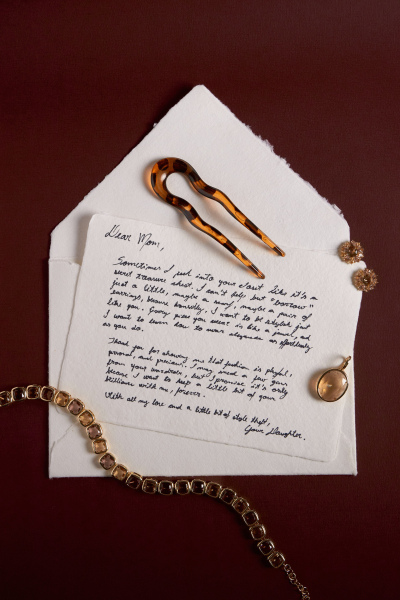 Dear Mom,
Sometimes I sneak into your closet like it's a
secret treasure chest. I can't help but "borrow"
just a little, maybe a scarf, maybe a pair of
earrings, because honestly, I want to be stylish just
like you. Every piece you wear is like a jewel, and
I want to learn how to wear elegance as effortlessly
as you do.
Thank you for showing me that fashion is playful,
personal, and precious. I may need a few years
from your wardrobe, but I promise it's only
because I want to keep a little bit of your
brilliance with me, forever.
With all my love and a little bit of style theft,
Your Daughter.